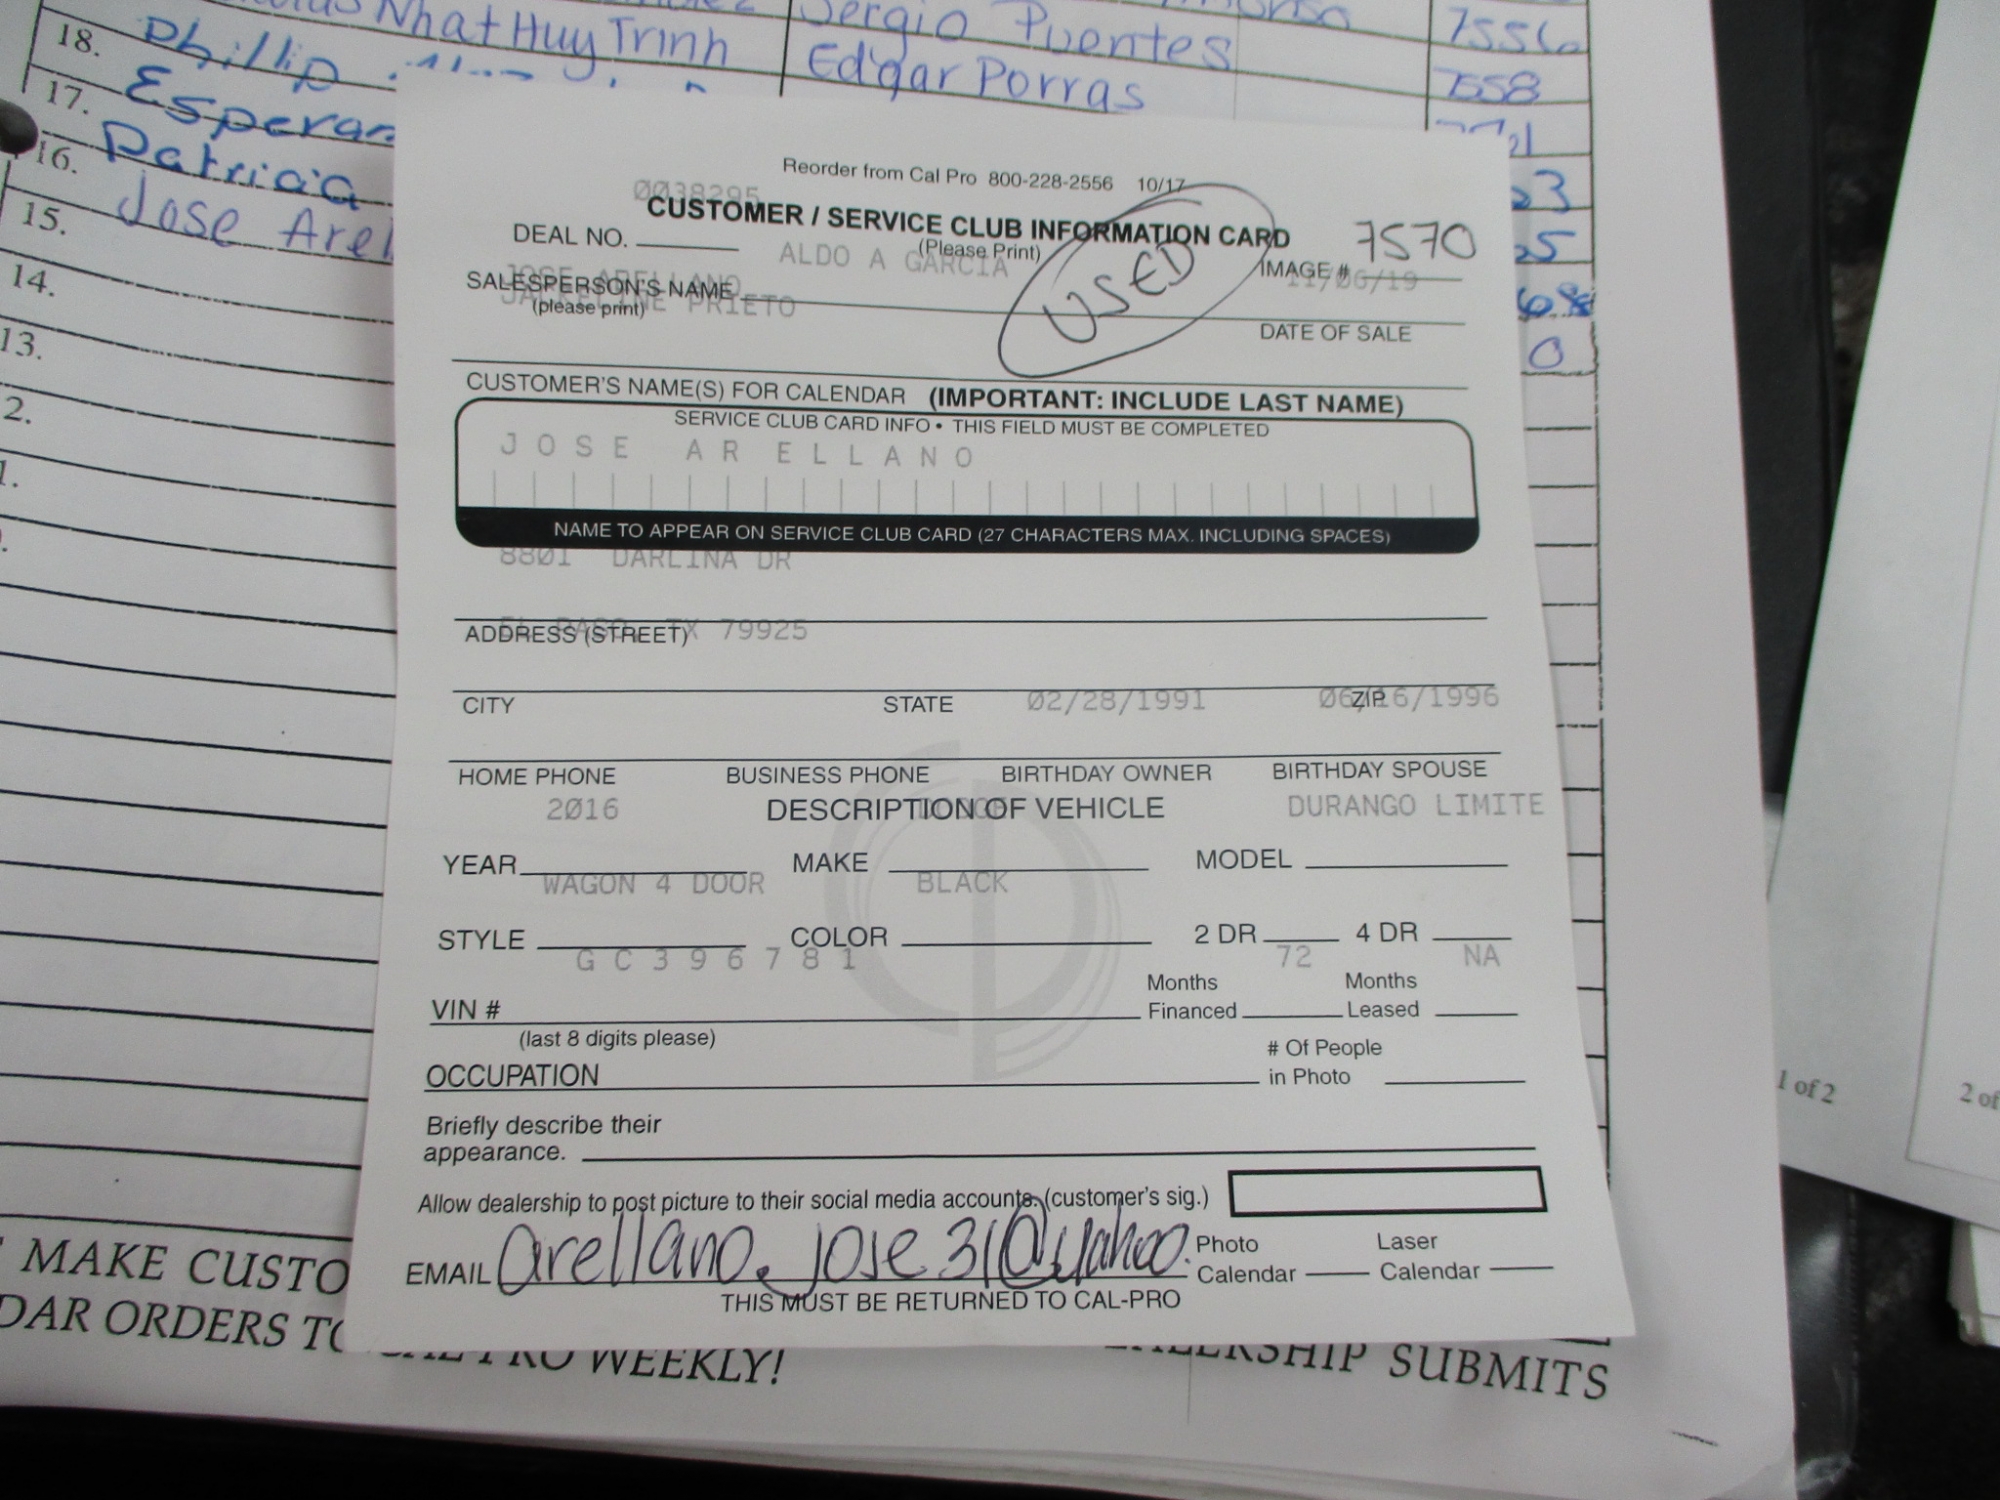 Nhat Huy Trinh
Sergio Puentes
7556
18. Phillip
Edgar Porras
7558
17. Esperan
16. Patricia
15. Jose Arel
14.
13.
2.
1.
Reorder from Cal Pro 800-228-2556 10/17
0038295
CUSTOMER / SERVICE CLUB INFORMATION CARD
7570
DEAL NO.
(Please Print)
ALDO A GARCIA
USED
IMAGE #
11/06/19
JOSE ARELLANO
SALESPERSON'S NAME
JACKELINE PRIETO
(please print)
DATE OF SALE
CUSTOMER'S NAME(S) FOR CALENDAR (IMPORTANT: INCLUDE LAST NAME)
SERVICE CLUB CARD INFO • THIS FIELD MUST BE COMPLETED
JOSE ARELLANO
NAME TO APPEAR ON SERVICE CLUB CARD (27 CHARACTERS MAX. INCLUDING SPACES)
8801 DARLINA DR
EL PASO TX 79925
ADDRESS (STREET)
CITY STATE ZIP
02/28/1991 06/16/1996
HOME PHONE BUSINESS PHONE BIRTHDAY OWNER BIRTHDAY SPOUSE
2016 DODGE DURANGO LIMITE
DESCRIPTION OF VEHICLE
YEAR MAKE MODEL
WAGON 4 DOOR BLACK
STYLE COLOR 2 DR 4 DR
GC396781 72 NA
VIN # Months Financed Months Leased
(last 8 digits please)
OCCUPATION # Of People in Photo
Briefly describe their
appearance.
Allow dealership to post picture to their social media accounts. (customer's sig.)
EMAIL arellano.jose31@yahoo. Photo Calendar Laser Calendar
THIS MUST BE RETURNED TO CAL-PRO
MAKE CUSTO
DAR ORDERS TO
WEEKLY!
SUBMITS
1 of 2
2 of